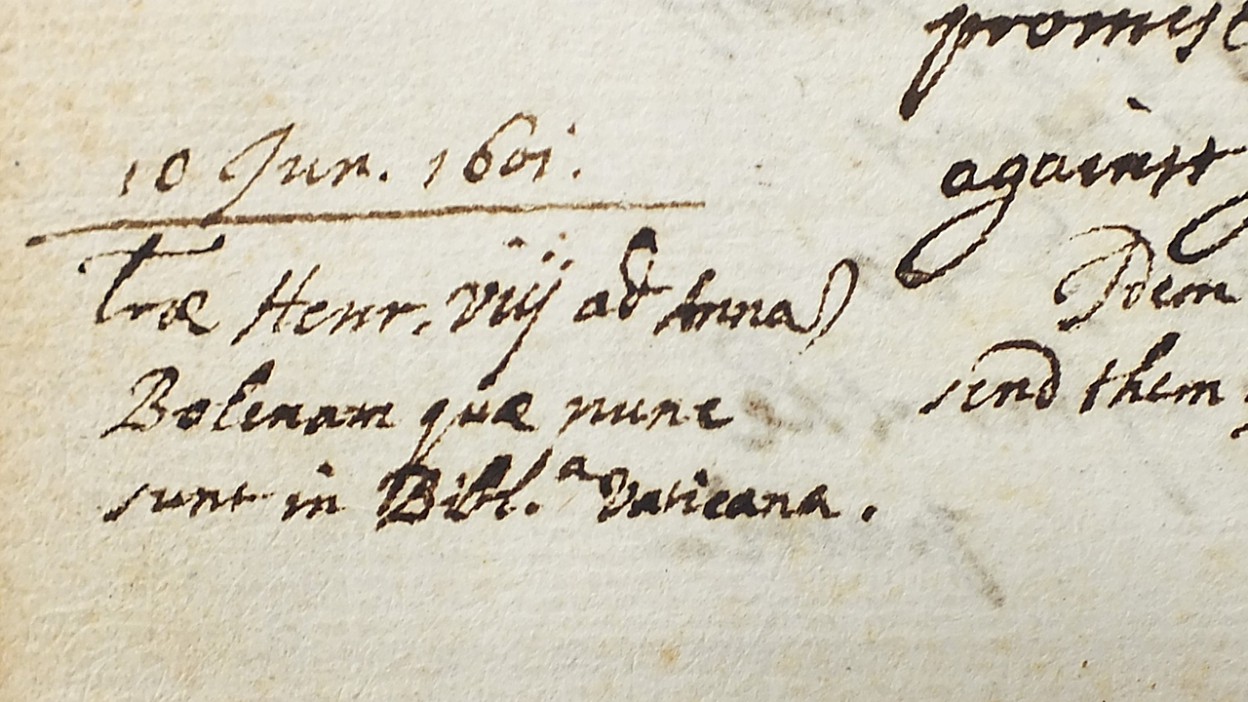 10 Jun. 1601.
Lræ Henr. viij ad Anna)
Bolenam quæ nunc
sunt in Bibl.ª Vaticana.
promise
against
Idem
send them